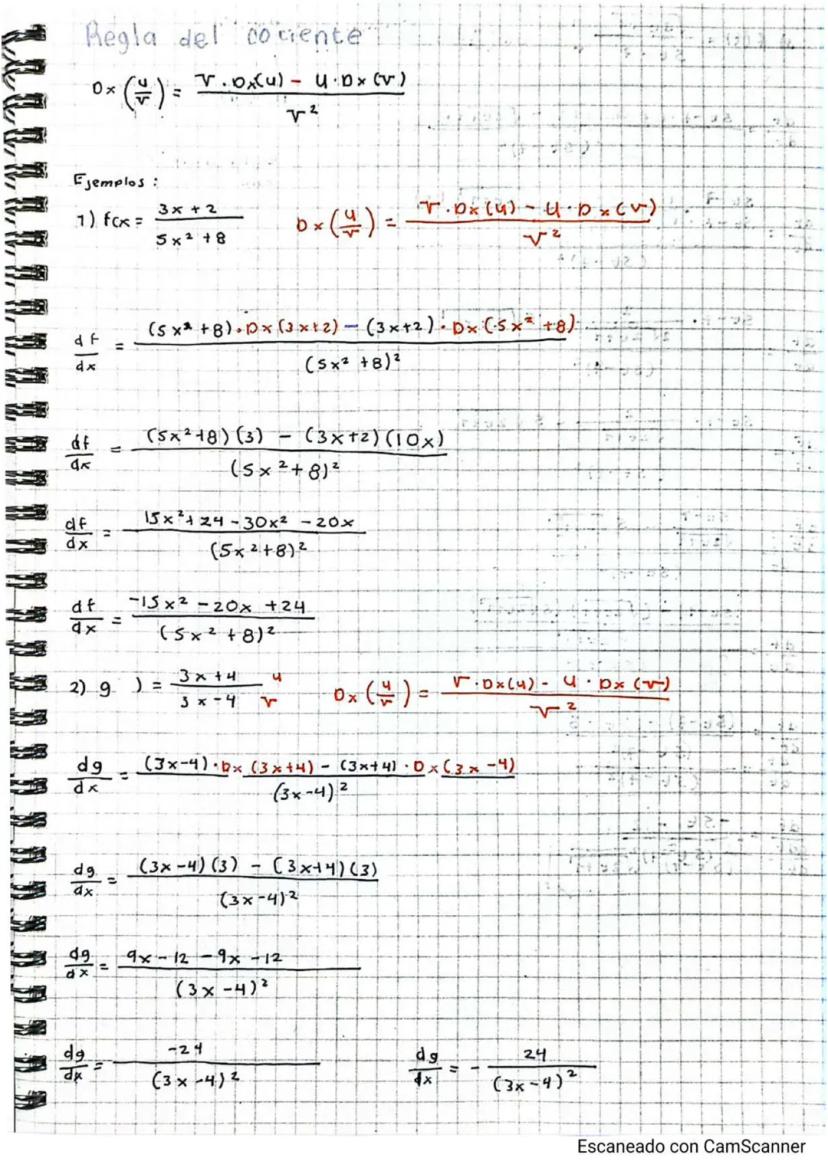 Regla del cociente
Dx (u/v) = v · Dx(u) - u · Dx(v) / v²
Ejemplos :
1) f(x = 3x + 2 / 5x² + 8    Dx (u/v) = v · Dx(u) - u · Dx(v) / v²
df/dx = (5x² + 8) · Dx(3x+2) - (3x+2) · Dx(5x² + 8) / (5x² + 8)²
df/dx = (5x²+8)(3) - (3x+2)(10x) / (5x²+8)²
df/dx = 15x²+24-30x² -20x / (5x²+8)²
df/dx = -15x² -20x +24 / (5x² +8)²
2) g ) = 3x+4 / 3x-4  u / v    Dx (u/v) = v · Dx(u) - u · Dx(v) / v²
dg/dx = (3x-4) · Dx(3x+4) - (3x+4) · Dx(3x-4) / (3x-4)²
dg/dx = (3x-4)(3) - (3x+4)(3) / (3x-4)²
dg/dx = 9x-12-9x-12 / (3x-4)²
dg/dx = -24 / (3x-4)²    dg/dx = - 24 / (3x-4)²
Escaneado con CamScanner